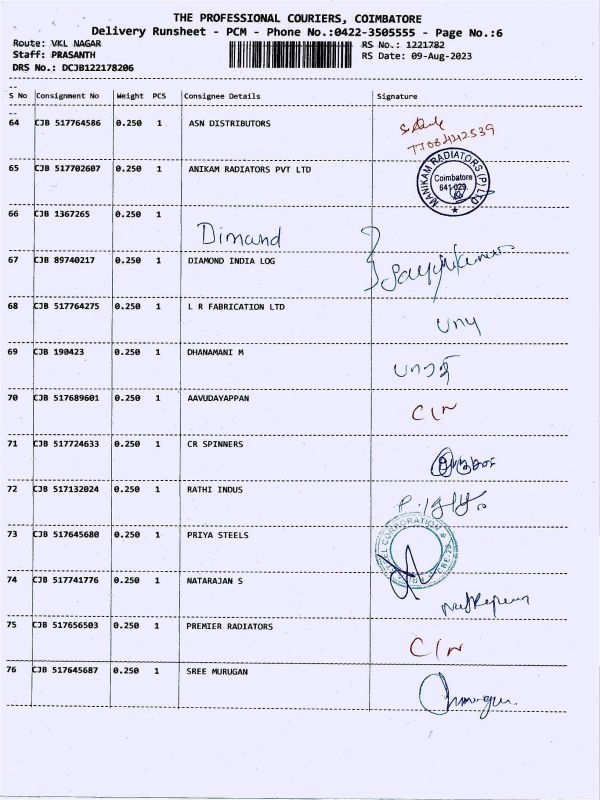 THE PROFESSIONAL COURIERS, COIMBATORE
Delivery Runsheet - PCM - Phone No.:0422-3505555 - Page No.:6
Route: VKL NAGAR RS No.: 1221782
Staff: PRASANTH RS Date: 09-Aug-2023
DRS No.: DCJB122178206
S No Consignment No Weight PCS Consignee Details Signature
64 CJB 517764586 0.250 1 ASN DISTRIBUTORS
65 CJB 517702607 0.250 1 ANIKAM RADIATORS PVT LTD
MANIKAM RADIATORS (P) LTD
Coimbatore
641 029.
66 CJB 1367265 0.250 1
Dimand
67 CJB 89740217 0.250 1 DIAMOND INDIA LOG
68 CJB 517764275 0.250 1 L R FABRICATION LTD
69 CJB 190423 0.250 1 DHANAMANI M
70 CJB 517689601 0.250 1 AAVUDAYAPPAN
71 CJB 517724633 0.250 1 CR SPINNERS
72 CJB 517132024 0.250 1 RATHI INDUS
73 CJB 517645680 0.250 1 PRIYA STEELS
CORPORATION
74 CJB 517741776 0.250 1 NATARAJAN S
75 CJB 517656503 0.250 1 PREMIER RADIATORS
76 CJB 517645687 0.250 1 SREE MURUGAN